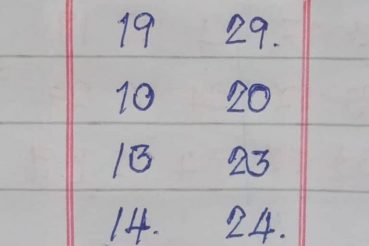 19 29.
10 20
13 23
14. 24.